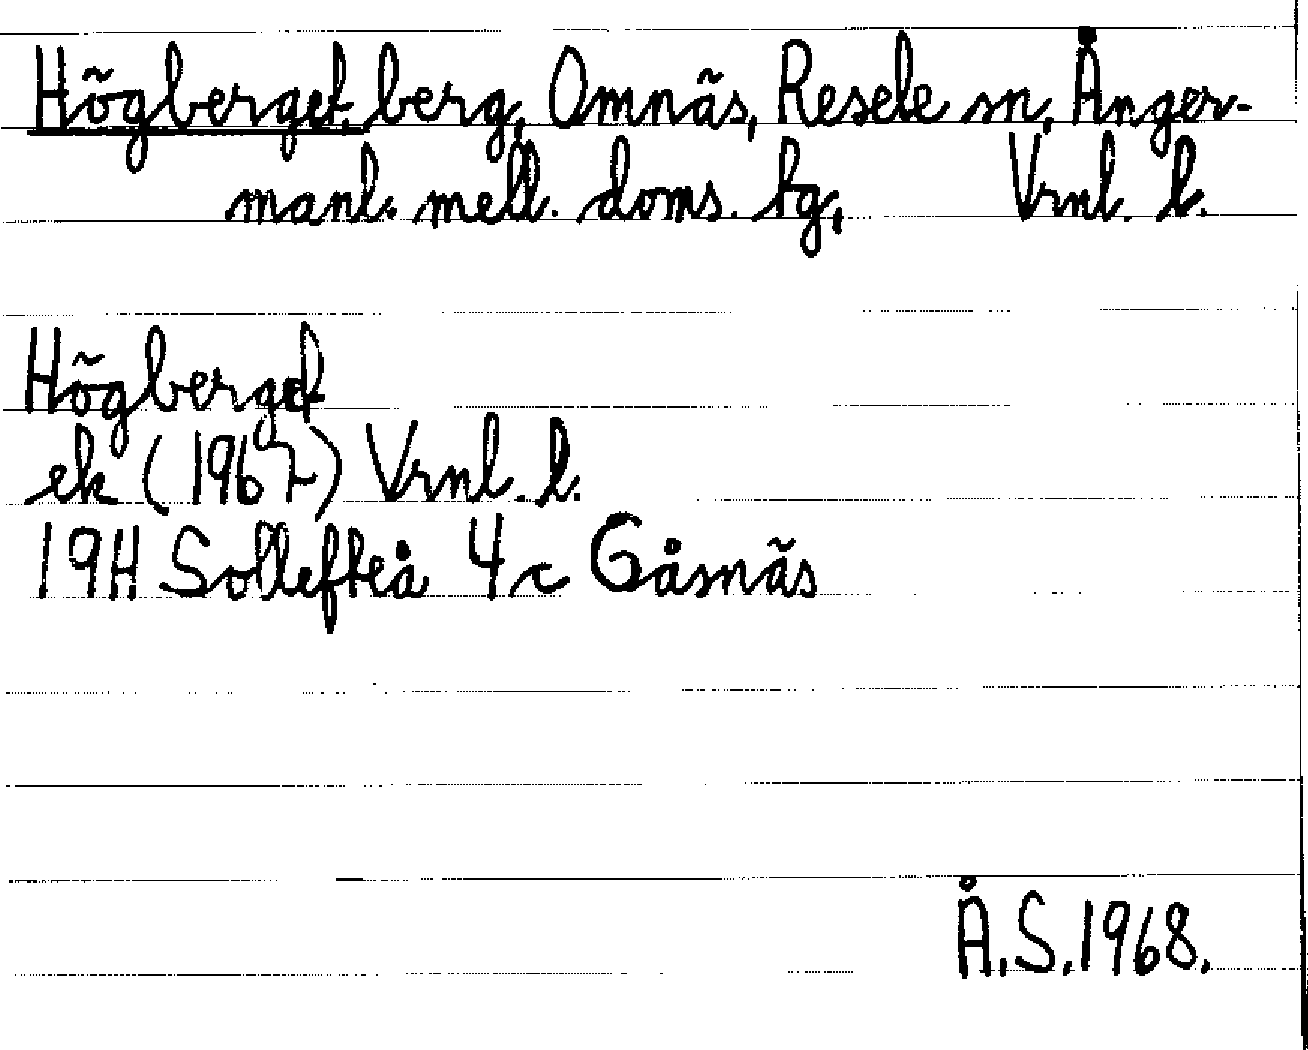 Högberget, berg, Omnäs, Resele sn, Ånger-
manl. mell. doms. tg, Vrnl. l.
Högberget
ek (1967) Vrnl. l.
19H Sollefteå 4c Gåsnäs
Å.S. 1968.